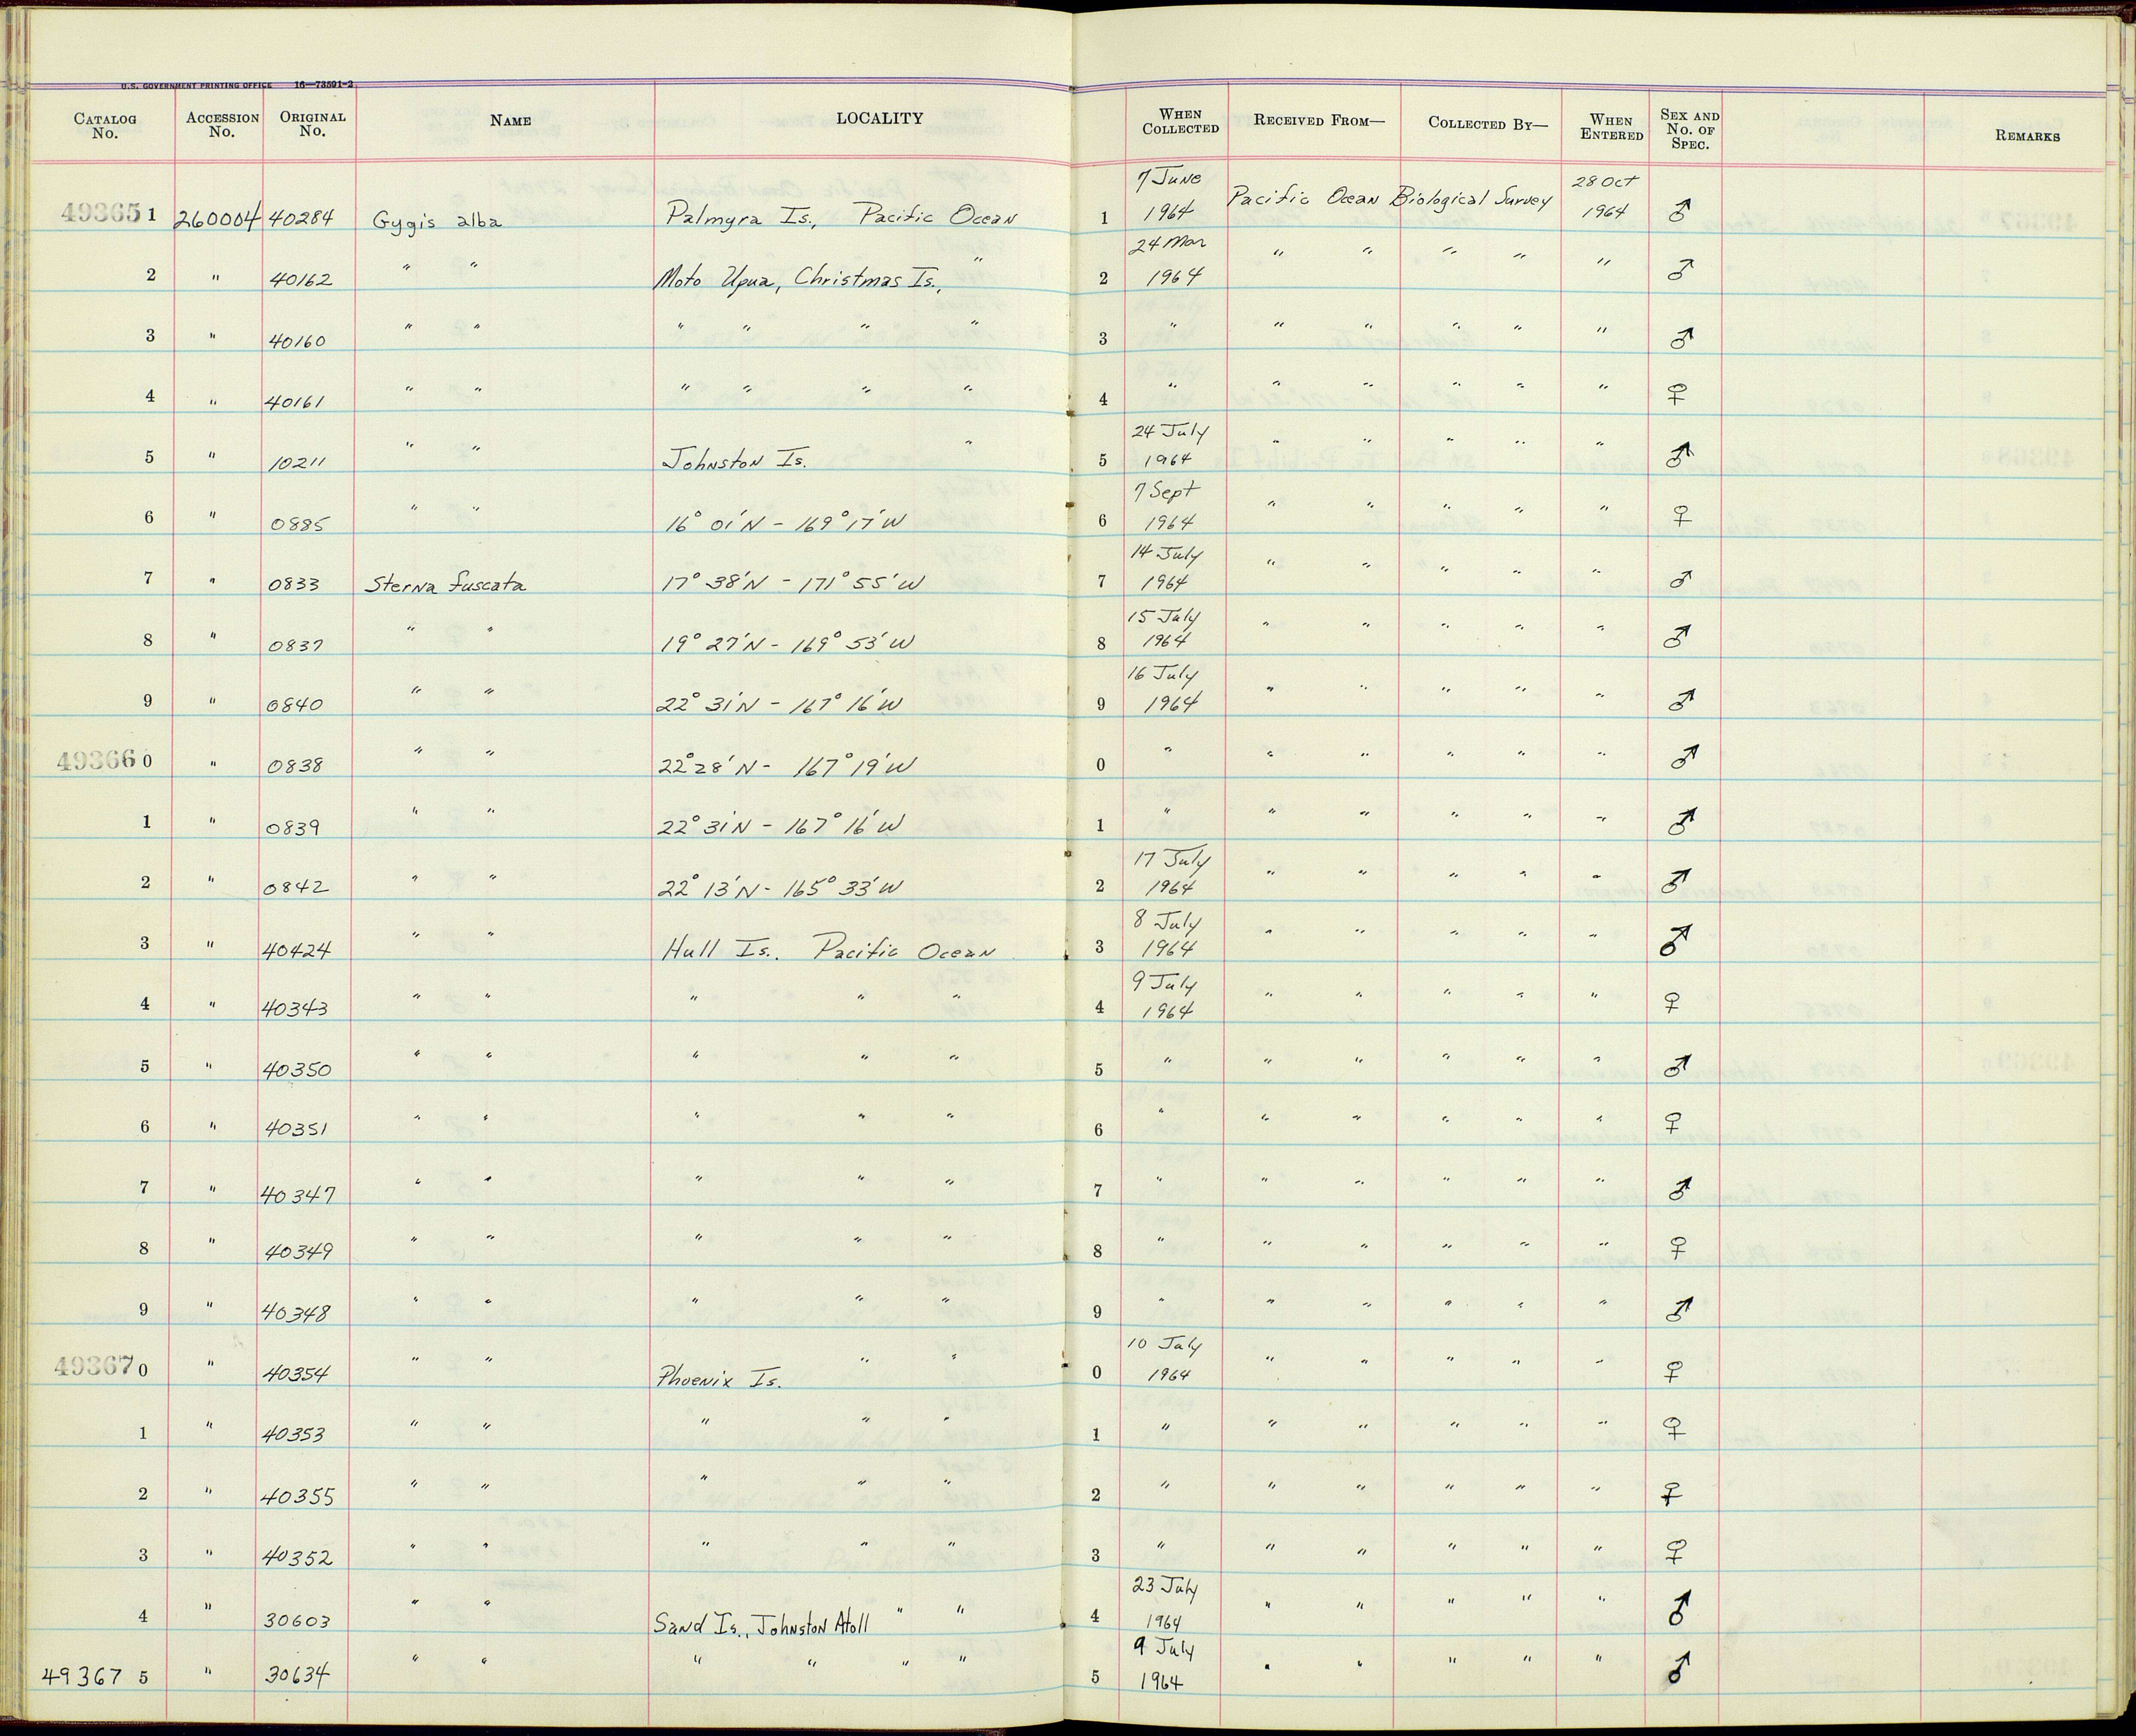 U.S. GOVERNMENT PRINTING OFFICE 16—73591-2
CATALOG No. ACCESSION No. ORIGINAL No. NAME LOCALITY WHEN COLLECTED RECEIVED FROM— COLLECTED BY— WHEN ENTERED SEX AND No. OF SPEC. REMARKS
49365 1 260004 40284 Gygis alba Palmyra Is., Pacific Ocean 1 7 June 1964 Pacific Ocean Biological Survey 28 Oct 1964 ♂
2 " 40162 " " Moto Upua, Christmas Is., " 2 24 Mar 1964 " " " " " ♂
3 " 40160 " " " " " " 3 " " " " " " ♂
4 " 40161 " " " " " " 4 " " " " " " ♀
5 " 10211 " " Johnston Is. " 5 24 July 1964 " " " " " ♂
6 " 0885 " " 16° 01'N - 169° 17'W 6 7 Sept 1964 " " " " " ♀
7 " 0833 Sterna fuscata 17° 38'N - 171° 55'W 7 14 July 1964 " " " " " ♂
8 " 0837 " " 19° 27'N - 169° 53'W 8 15 July 1964 " " " " " ♂
9 " 0840 " " 22° 31'N - 167° 16'W 9 16 July 1964 " " " " " ♂
49366 0 " 0838 " " 22° 28'N - 167° 19'W 0 " " " " " " ♂
1 " 0839 " " 22° 31'N - 167° 16'W 1 " " " " " " ♂
2 " 0842 " " 22° 13'N - 165° 33'W 2 17 July 1964 " " " " " ♂
3 " 40424 " " Hull Is. Pacific Ocean 3 8 July 1964 " " " " " ♂
4 " 40343 " " " " " 4 9 July 1964 " " " " " ♀
5 " 40350 " " " " " 5 " " " " " " ♂
6 " 40351 " " " " " 6 " " " " " " ♀
7 " 40347 " " " " " 7 " " " " " " ♂
8 " 40349 " " " " " 8 " " " " " " ♀
9 " 40348 " " " " " 9 " " " " " " ♂
49367 0 " 40354 " " Phoenix Is. " " 0 10 July 1964 " " " " " ♀
1 " 40353 " " " " " 1 " " " " " " ♀
2 " 40355 " " " " " 2 " " " " " " ♀
3 " 40352 " " " " " 3 " " " " " " ♀
4 " 30603 " " Sand Is., Johnston Atoll " " 4 23 July 1964 " " " " " ♂
49367 5 " 30634 " " " " " " 5 9 July 1964 " " " " " ♂